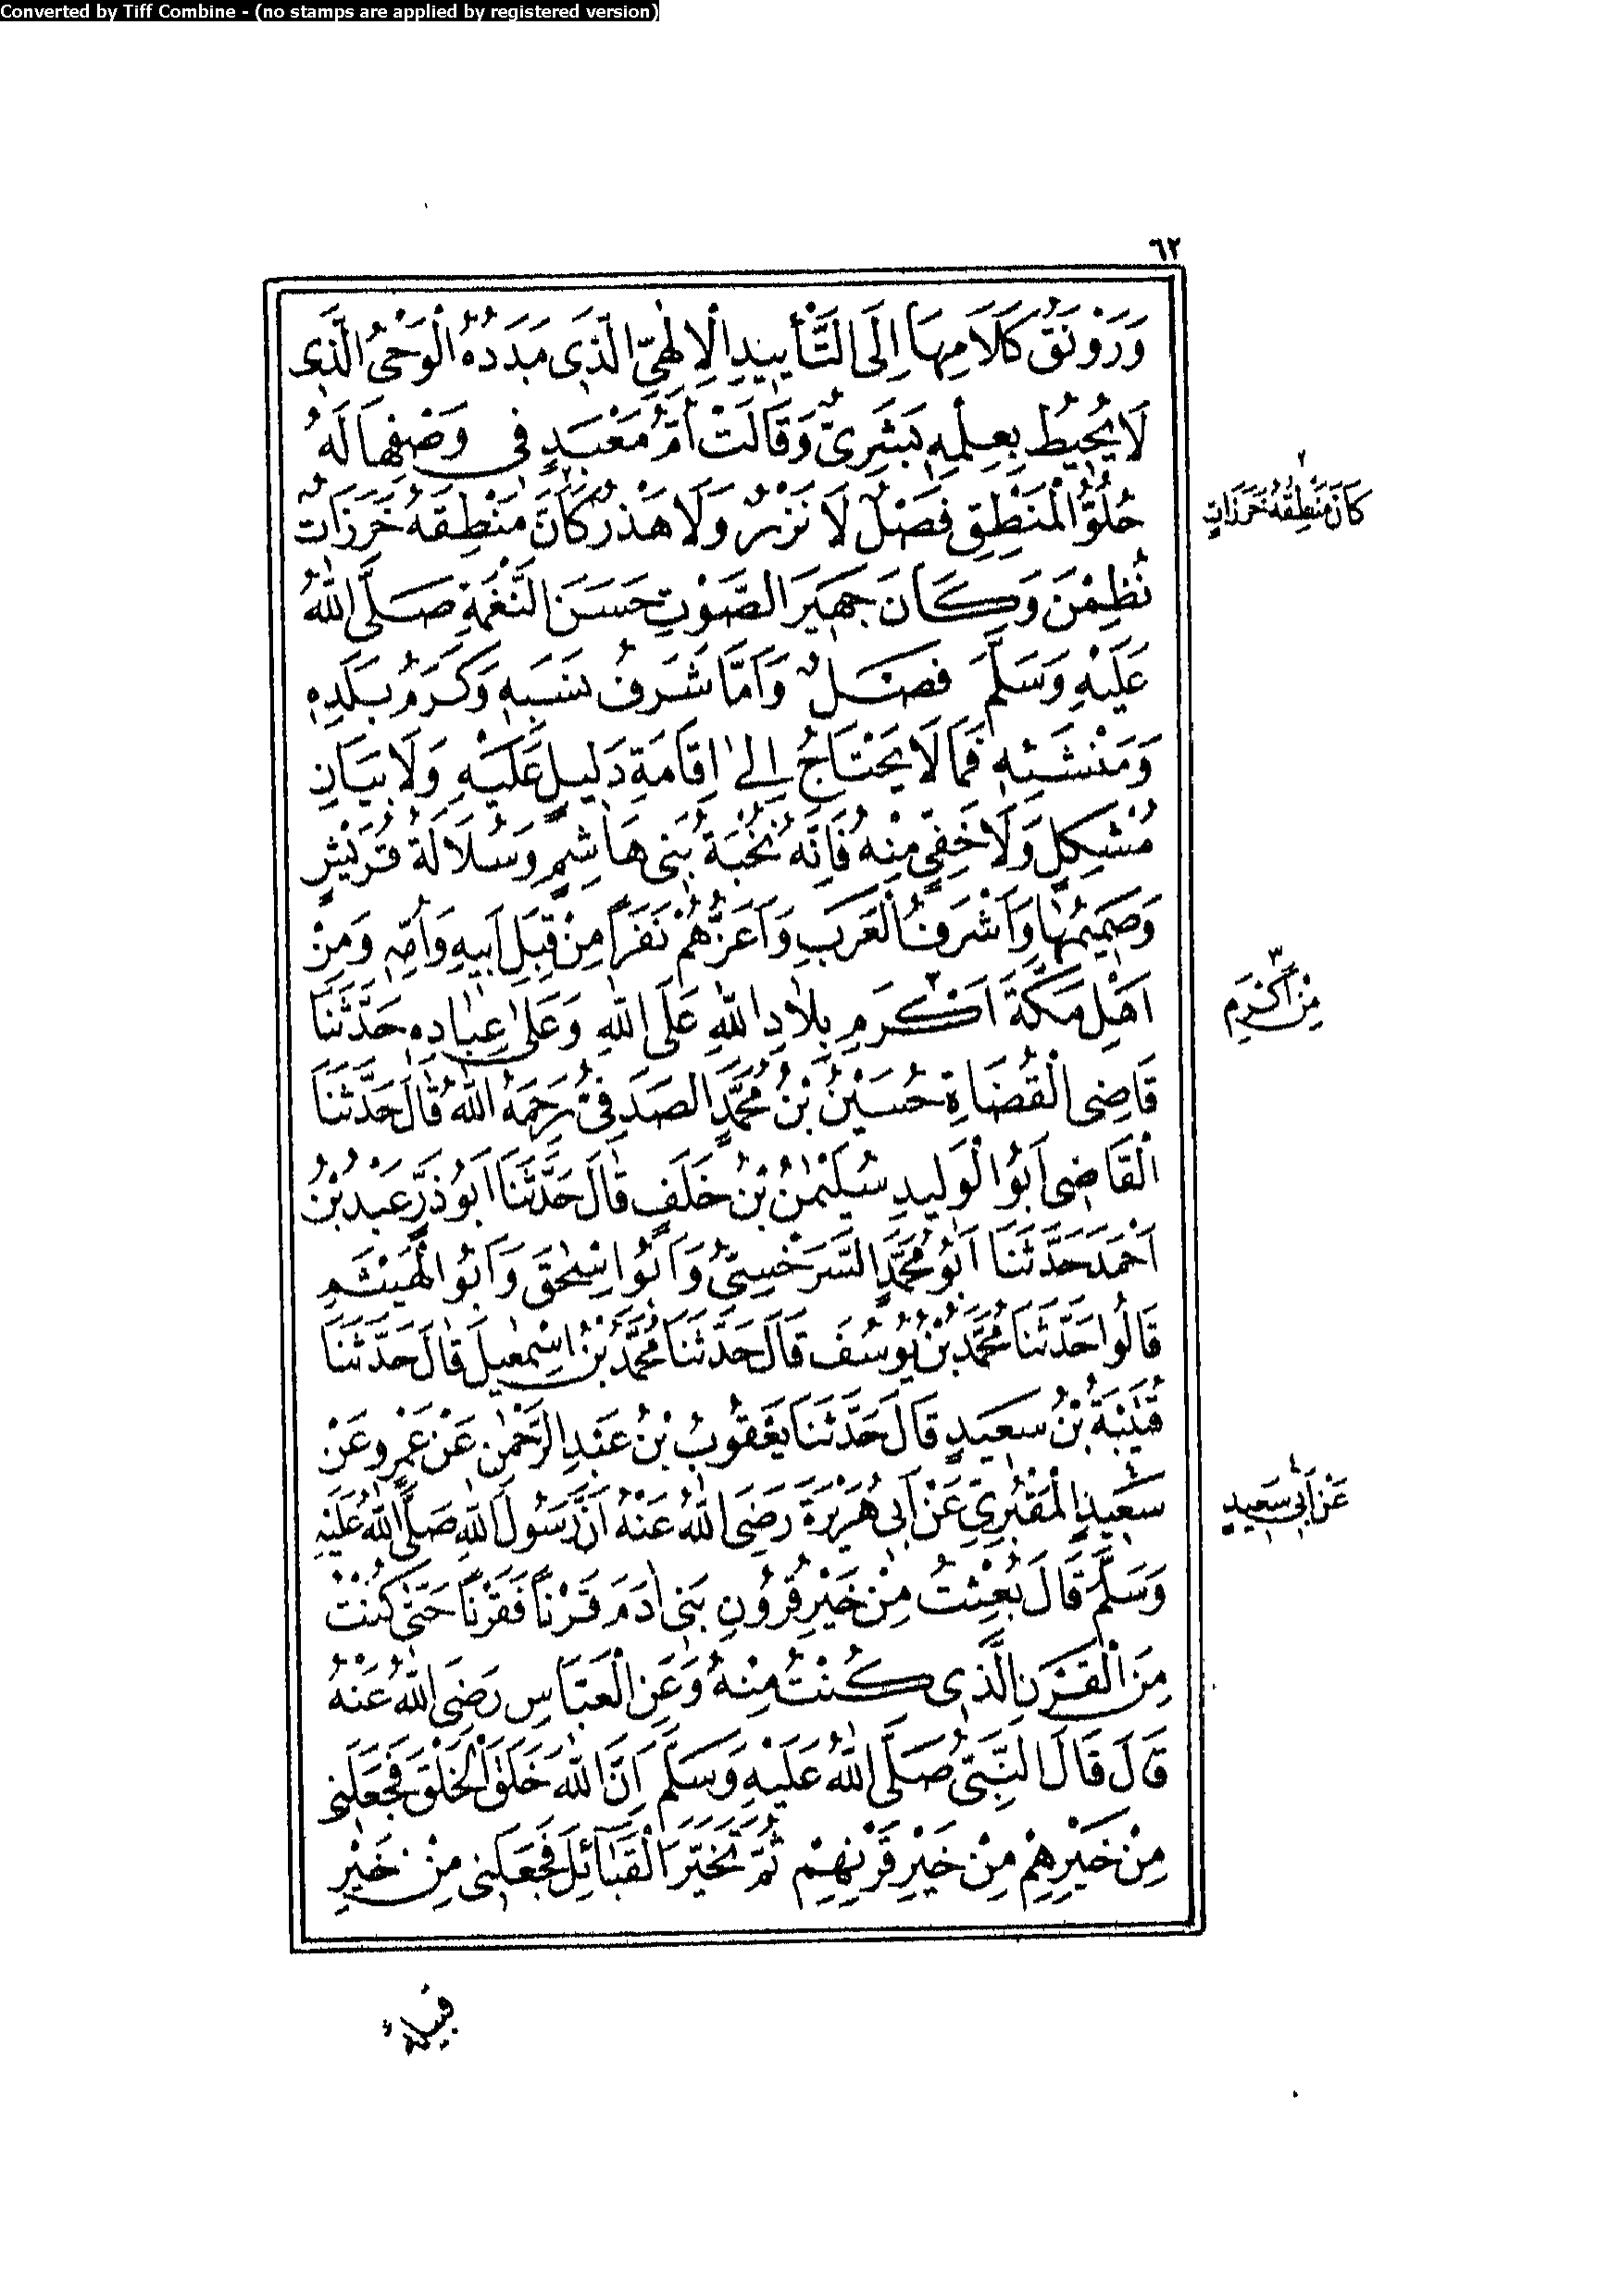 Converted by Tiff Combine - (no stamps are applied by registered version)
٦٢
وَرَوْنَقُ كَلَامِهَا إِلَى التَّأْيِيدِ الْإِلٰهِيِّ الَّذِى مَدَدُهُ الْوَحْىُ الَّذِى
لَا يُحِيطُ بِعِلْمِهِ بَشَرِىٌّ وَقَالَتْ أُمُّ مَعْبَدٍ فِى وَصْفِهَا لَهُ
حُلْوُ الْمَنْطِقِ فَصْلٌ لَا نَزْرٌ وَلَا هَذْرٌ كَاَنَّ مَنْطِقَهُ خَرَزَاتٌ
كَانَ مَنْطِقُهُ خَرَزَاتٍ
نُظِمْنَ وَكَانَ جَهِيرَ الصَّوْتِ حَسَنَ النَّغْمَةِ صَلَّى اللهُ
عَلَيْهِ وَسَلَّمَ فَصْلٌ وَاَمَّا شَرَفُ نَسَبِهِ وَكَرَمُ بَلَدِهِ
وَمَنْشَئِهِ فَمَا لَا يَحْتَاجُ إِلَى اِقَامَةِ دَلِيلٍ عَلَيْهِ وَلَا بَيَانِ
مُشْكِلٍ وَلَا خَفِىٍّ مِنْهُ فَاِنَّهُ نُخْبَةُ بَنِى هَاشِمٍ وَسُلَالَةُ قُرَيْشٍ
وَصَمِيمُهَا وَاَشْرَفُ الْعَرَبِ وَاَعَزُّهُمْ نَفَراً مِنْ قِبَلِ اَبِيهِ وَاُمِّهِ وَمِنْ
اَهْلِ مَكَّةَ اَكْرَمِ بِلَادِ اللهِ عَلَى اللهِ وَعَلَى عِبَادِهِ حَدَّثَنَا
مِنْ اَكْرَمِ
قَاضِى الْقُضَاةِ حُسَيْنُ بْنُ مُحَمَّدٍ الصَّدَفِىُّ رَحِمَهُ اللهُ قَالَ حَدَّثَنَا
الْقَاضِى اَبُو الْوَلِيدِ سُلَيْمٰنُ بْنُ خَلَفٍ قَالَ حَدَّثَنَا اَبُو ذَرٍّ عَبْدُ بْنُ
اَحْمَدَ حَدَّثَنَا اَبُو مُحَمَّدٍ السَّرَخْسِىُّ وَاَبُو اِسْحٰقَ وَاَبُو الْهَيْثَمِ
قَالُوا حَدَّثَنَا مُحَمَّدُ بْنُ يُوسُفَ قَالَ حَدَّثَنَا مُحَمَّدُ بْنُ اِسْمٰعِيلَ قَالَ حَدَّثَنَا
قُتَيْبَةُ بْنُ سَعِيدٍ قَالَ حَدَّثَنَا يَعْقُوبُ بْنُ عَبْدِ الرَّحْمٰنِ عَنْ عَمْرٍو عَنْ
سَعِيدٍ الْمَقْبُرِيِّ عَنْ اَبِى هُرَيْرَةَ رَضِىَ اللهُ عَنْهُ اَنَّ رَسُولَ اللهِ صَلَّى اللهُ عَلَيْهِ
عَنْ اَبِى سَعِيدٍ
وَسَلَّمَ قَالَ بُعِثْتُ مِنْ خَيْرِ قُرُونِ بَنِى اٰدَمَ قَرْناً فَقَرْناً حَتَّى كُنْتُ
مِنَ الْقَرْنِ الَّذِى كُنْتُ مِنْهُ وَعَنِ الْعَبَّاسِ رَضِىَ اللهُ عَنْهُ
قَالَ قَالَ النَّبِىُّ صَلَّى اللهُ عَلَيْهِ وَسَلَّمَ اِنَّ اللهَ خَلَقَ الْخَلْقَ فَجَعَلَنِى
مِنْ خَيْرِهِمْ مِنْ خَيْرِ قَرْنِهِمْ ثُمَّ تَخَيَّرَ الْقَبَائِلَ فَجَعَلَنِى مِنْ خَيْرِ
قبيلة